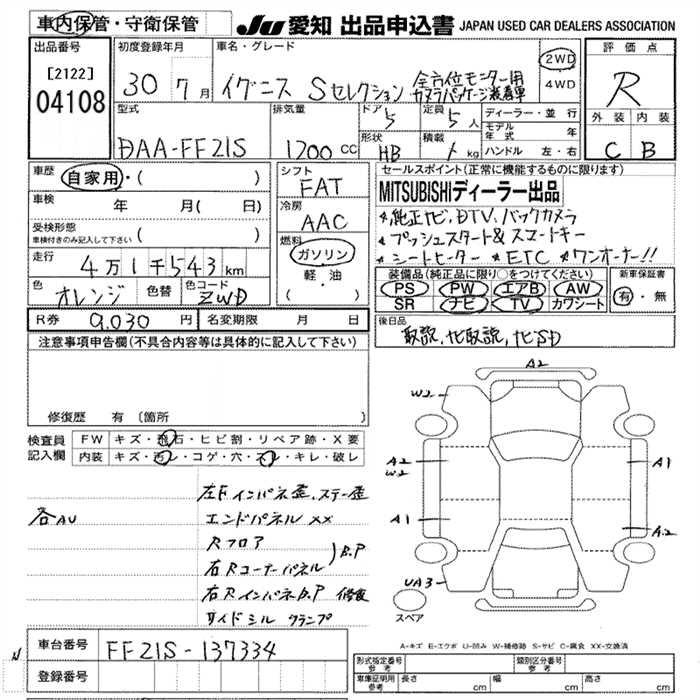 車内保管・守衛保管
JU 愛知 出品申込書 JAPAN USED CAR DEALERS ASSOCIATION
出品番号
[2122]
04108
初度登録年月
30 7月
車名・グレード
イグニス Sセレクション 全方位モニター用
カメラパッケージ装着車
2WD
4WD
評価点
R
外装 内装
C B
型式
DAA-FF21S
排気量
1200 CC
ドア
5
形状
HB
定員
5人
積載
kg
ディーラー・並行
モデル年式 年
ハンドル 左・右
車歴
自家用・( )
車検
年 月( 日)
受検形態
車検付きのみ記入して下さい ( )
走行
4万1千543km
色
オレンジ
色替
色コード
ZWD
シフト
FAT
冷房
AAC
燃料
ガソリン
軽・油
( )
セールスポイント(正常に機能するものに限ります)
MITSUBISHIディーラー出品
★純正ナビ、DTV、バックカメラ
★プッシュスタート&スマートキー
★シートヒーター ★ETC ★ワンオーナー!!
装備品(純正品に限り○をつけてください)
PS PW エアB AW
SR ナビ TV カワシート
新車保証書
有・無
R券 9,030円
名変期限 月 日
後日品
取説、ナビ取説、ナビSD
注意事項申告欄(不具合内容等は具体的に記入して下さい)
修復歴 有 〔箇所
検査員
記入欄
FW キズ・飛石・ヒビ割・リペア跡・X要
内装 キズ・汚レ・コゲ・穴・スレ・キレ・破レ
各AU
左Fインパネ歪、ステー歪
エンドパネル XX
Rフロア
右Rコーナーパネル
B.P
右RインパネB.P 修復
サイドシル クランプ
A2
W2
A2
W2
A1
A1
A2
UA3
スペア
A-キズ E-エクボ U-凹み W-補修跡 S-サビ C-腐食 XX-交換済
N
車台番号 FF21S-137334
登録番号
形式指定番号
参考
類別区分番号
参考
車庫証明用
参考
長さ cm
幅 cm
高さ cm